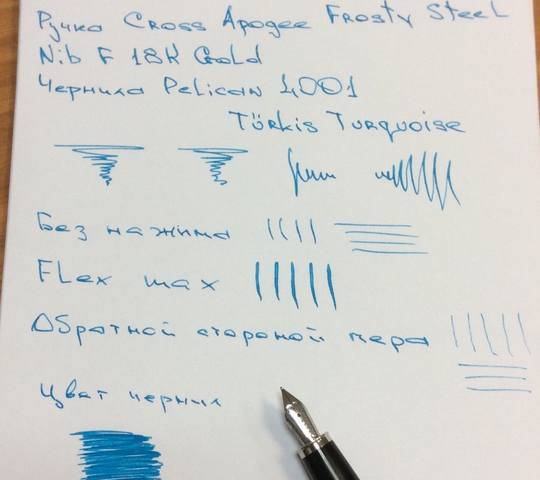 Ручка Cross Apogee Frosty Steel
Nib F 18K Gold
Чернила Pelican 4001
Türkis Turquoise
Без нажима
FLex max
Обратной стороной пера
Цвет чернил